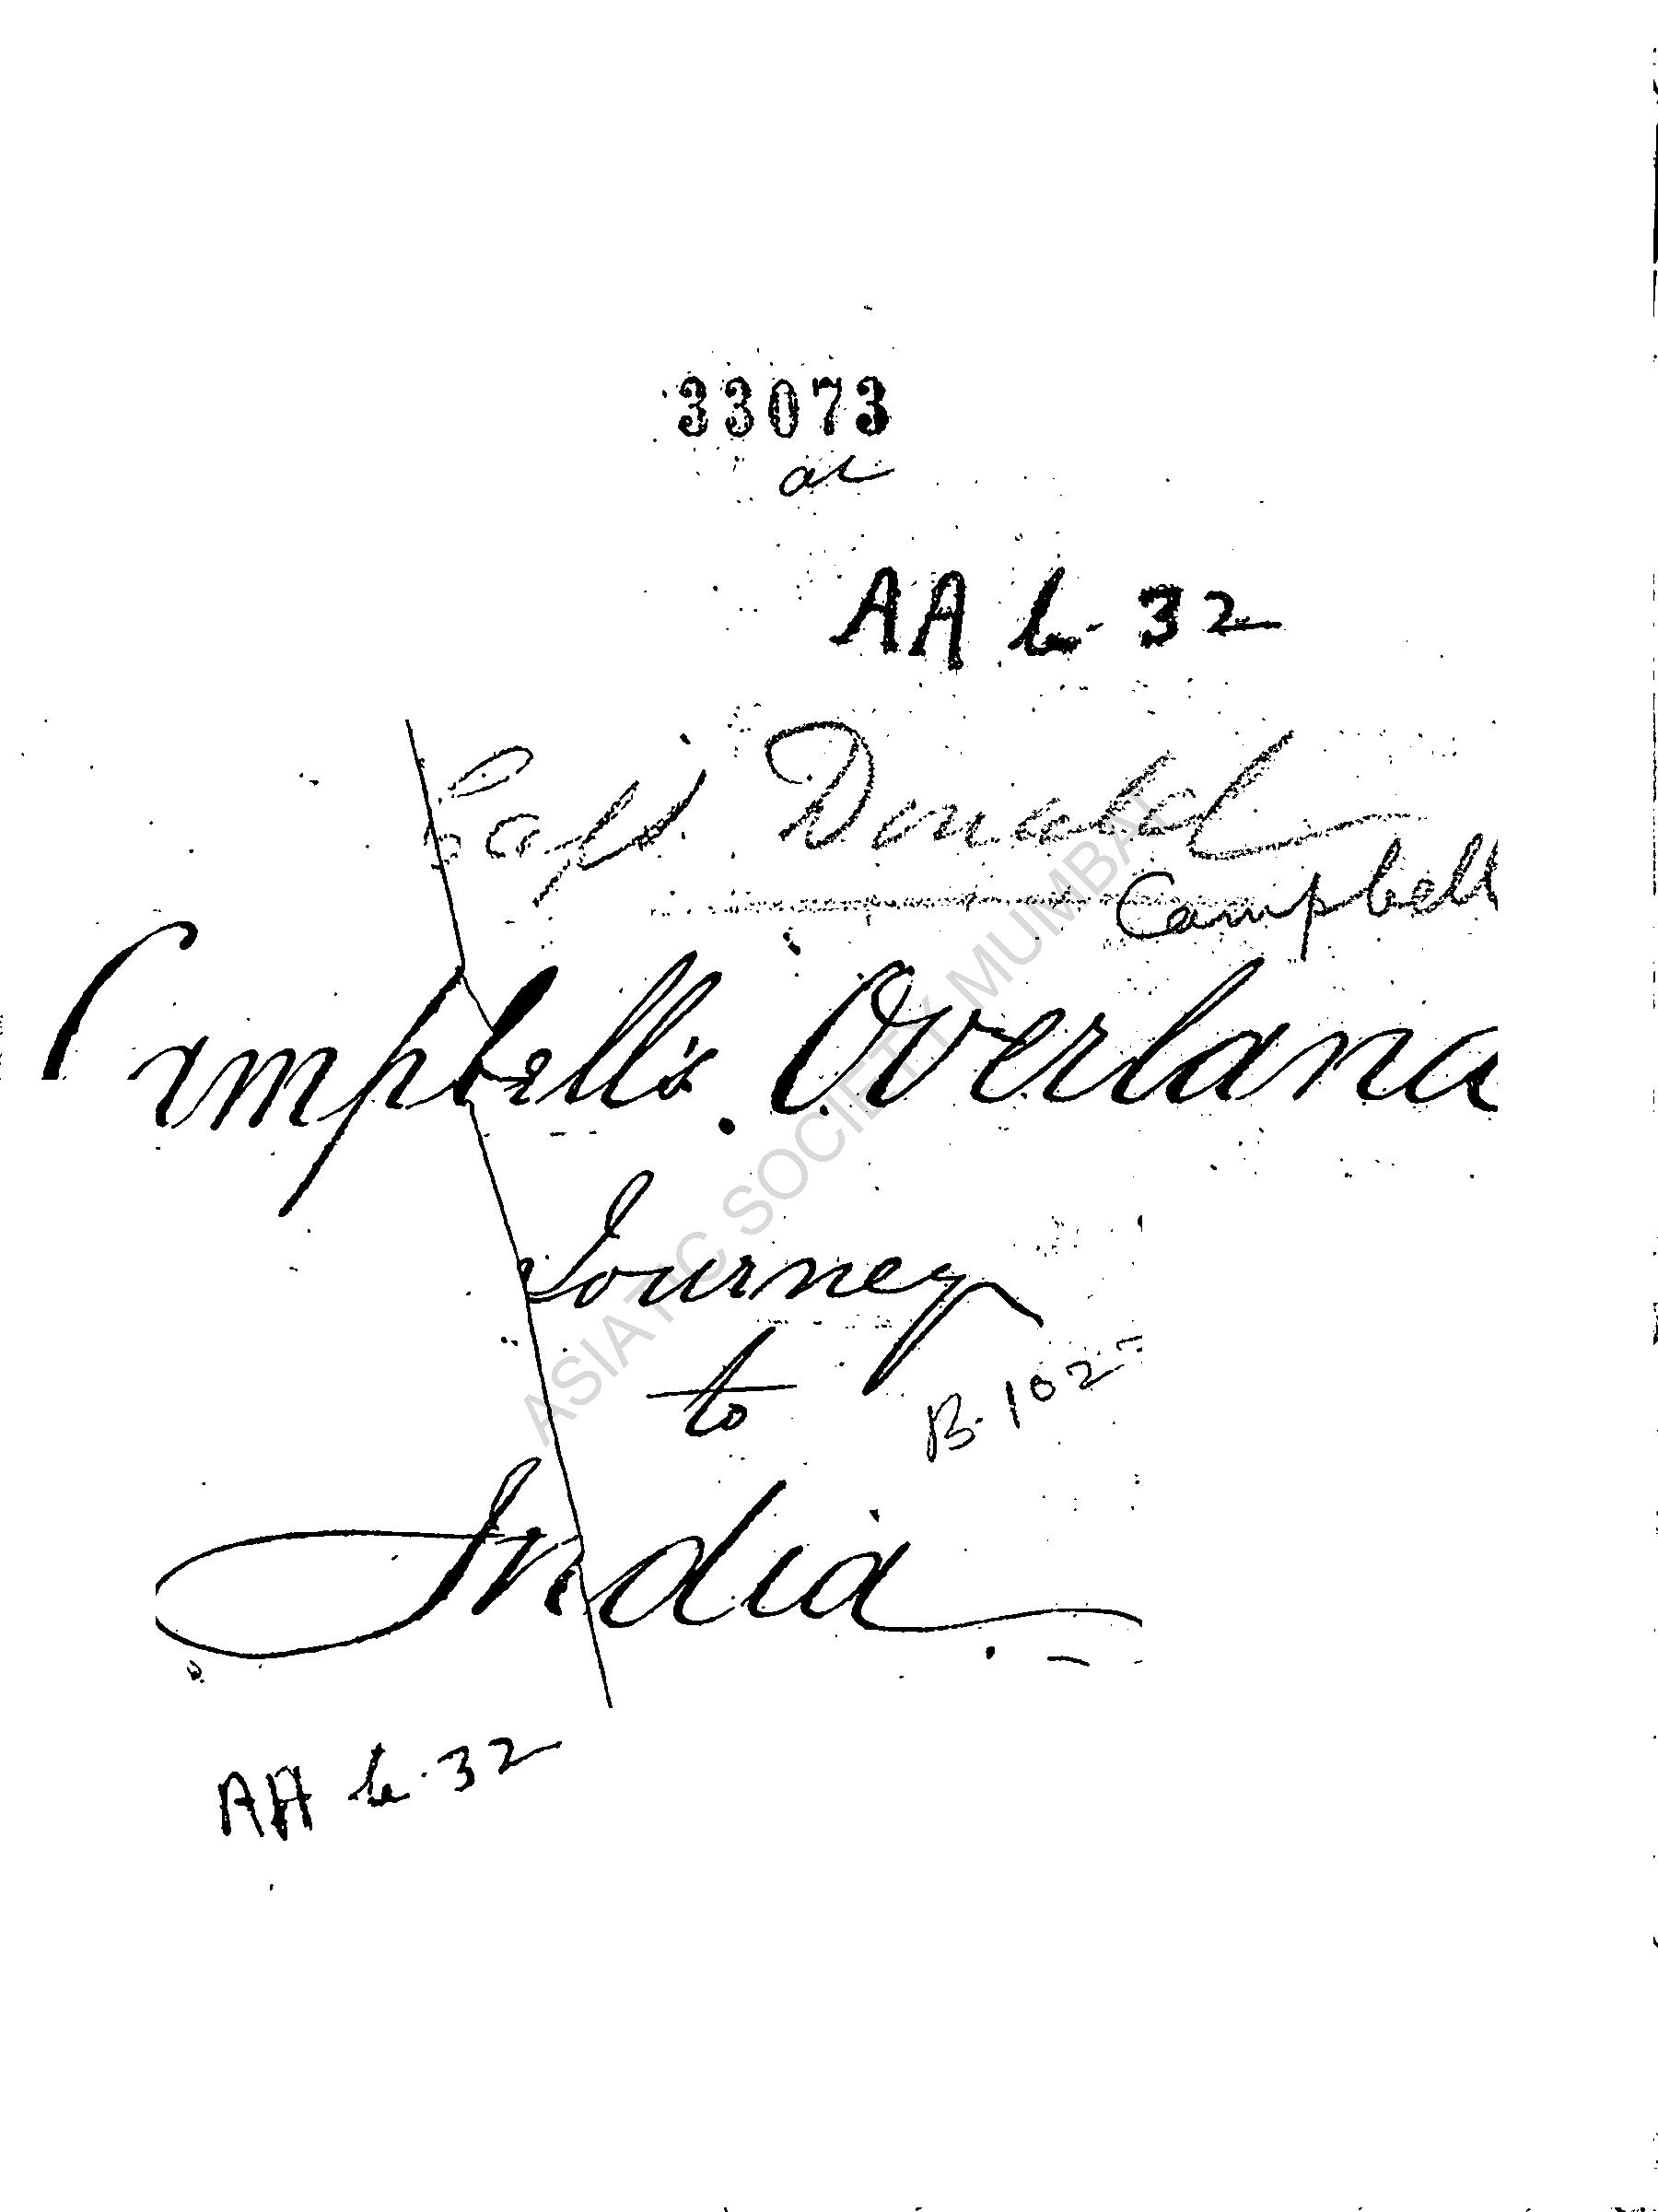 33073
ac
AA b-32
Capt. Donald
Campbell
Campbell's Overland
Journey
to
B-102
India
AA b.32
ASIATIC SOCIETY MUMBAI